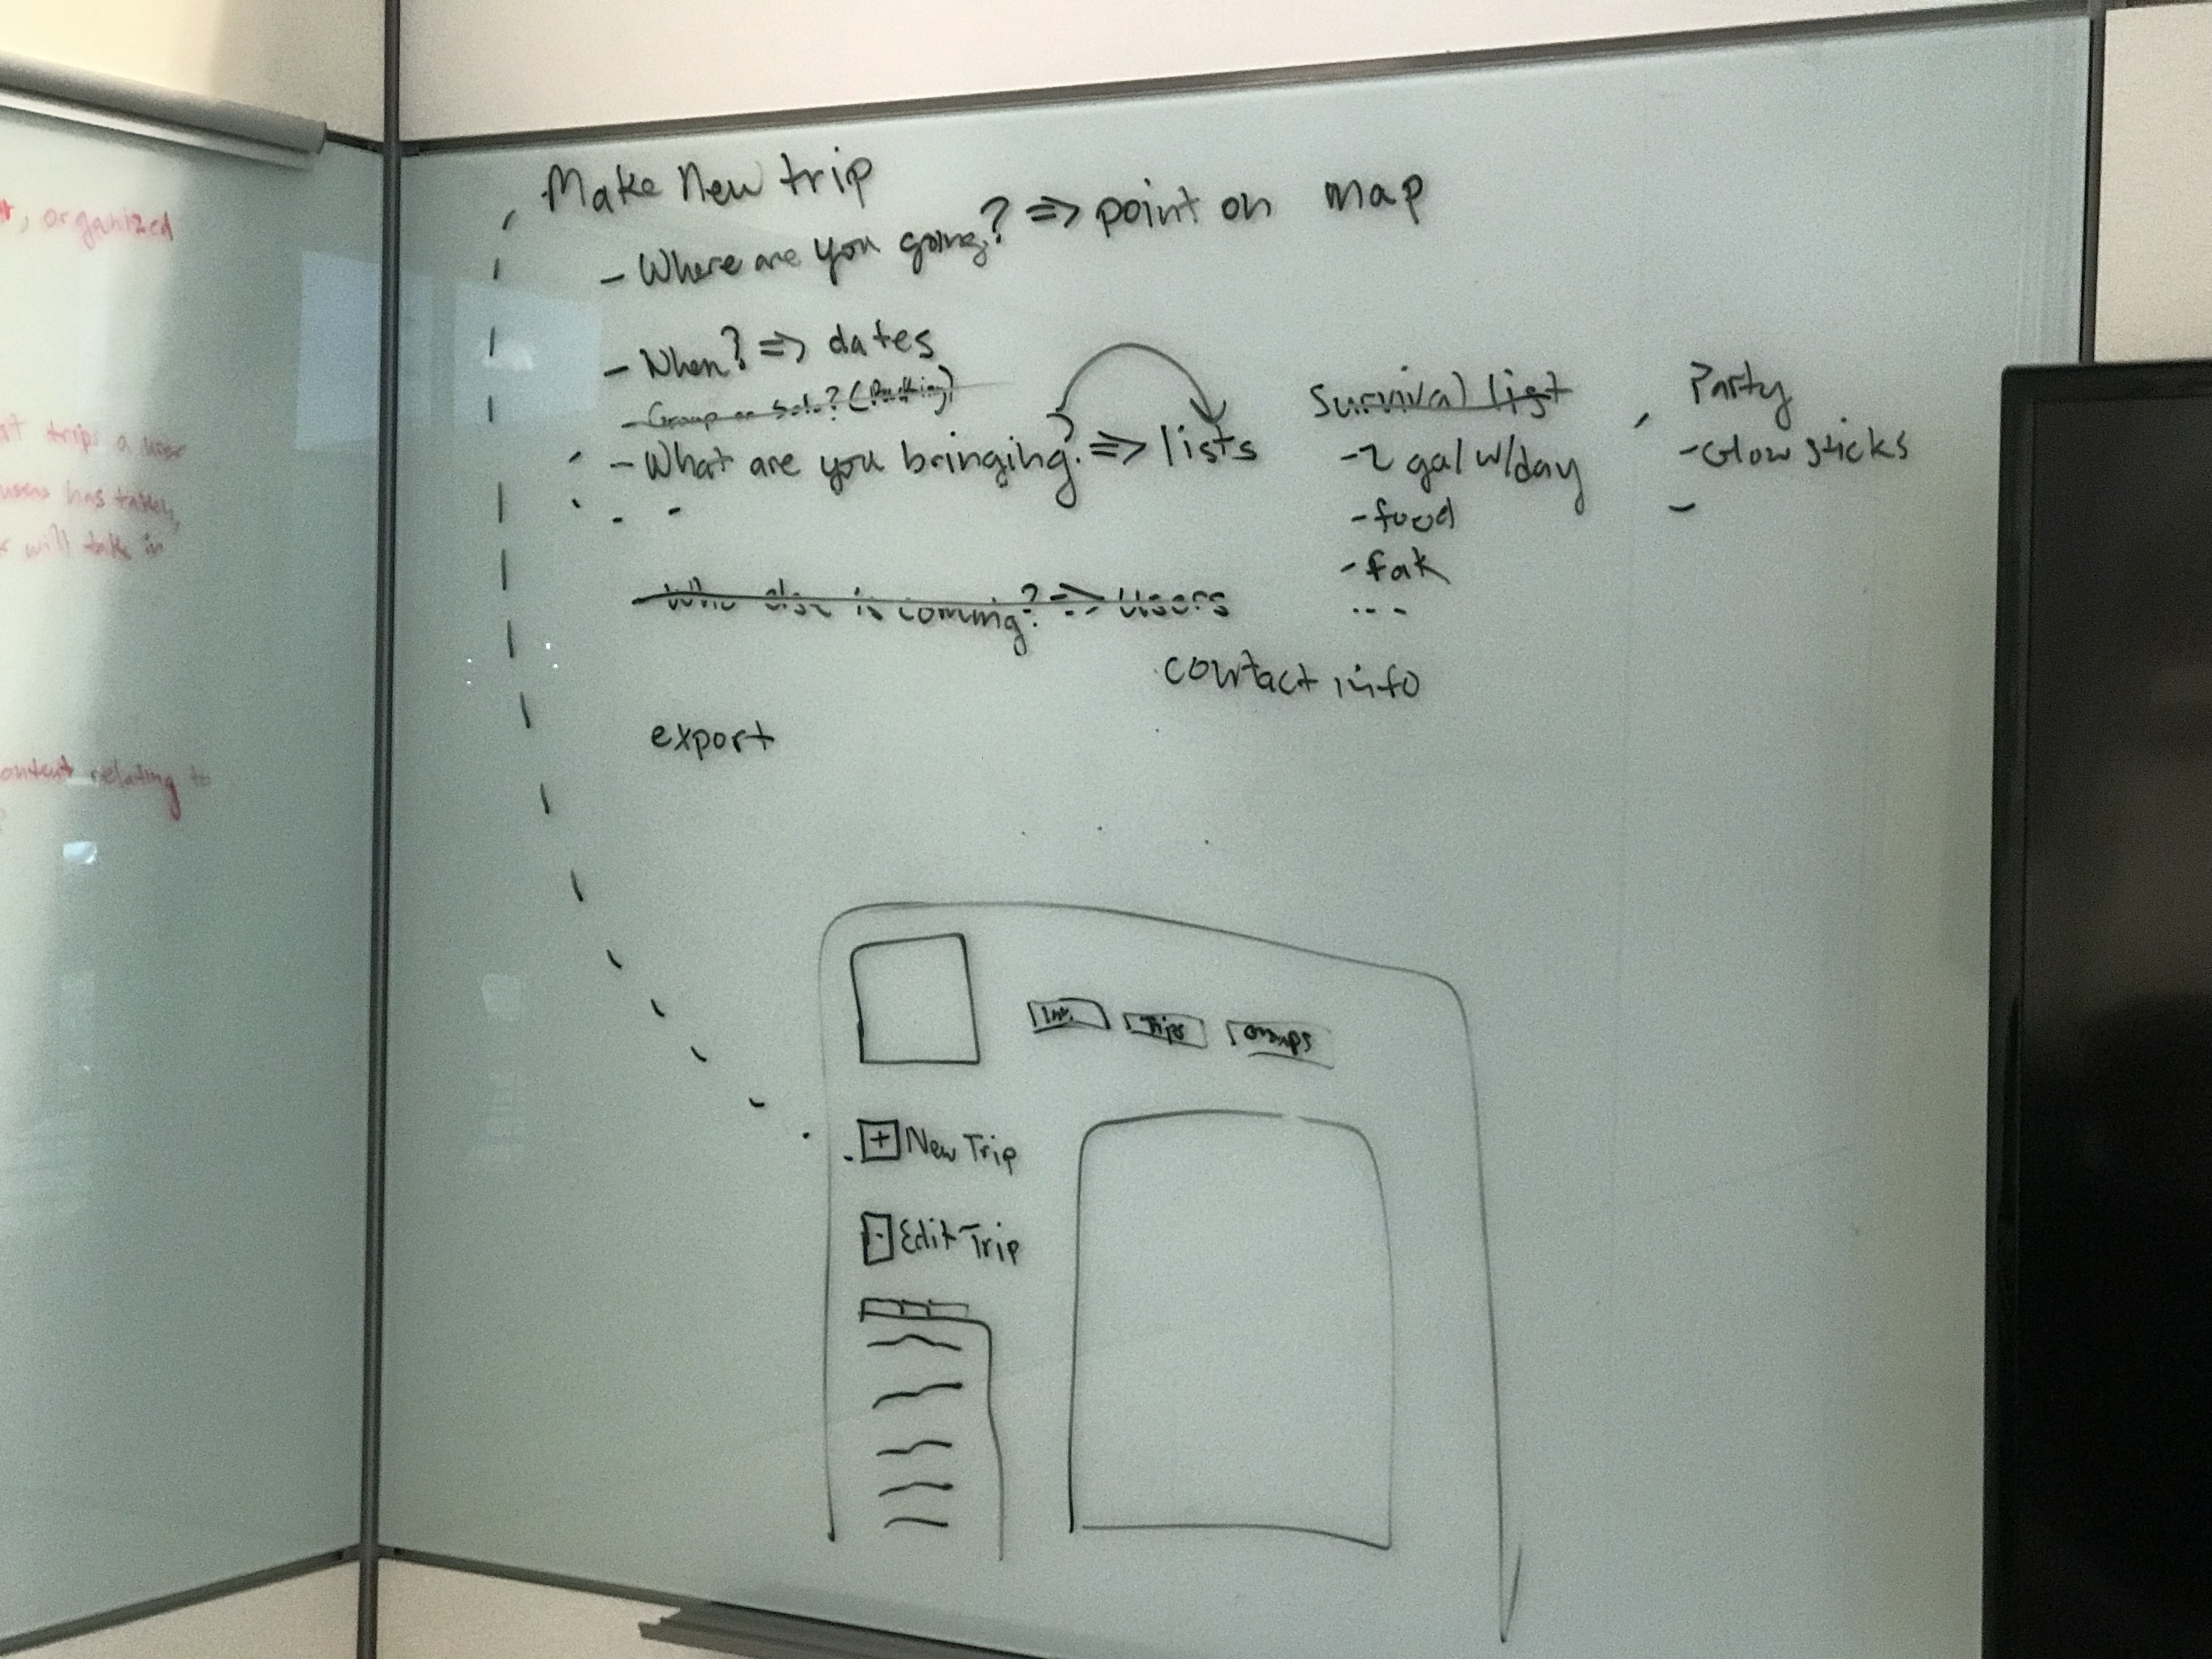 , organized
trips a user
users has taken,
will take in
content relating to
Make New trip
- Where are you going? => point on map
- When? => dates
- Group or Solo? (Packing)
- What are you bringing? => lists
- Who else is coming? => Users
contact info
export
Survival list
- 2 gal w/day
- food
- fak
...
Party
- Glow sticks
-
Inv. Trips Groups
+ New Trip
- Edit Trip